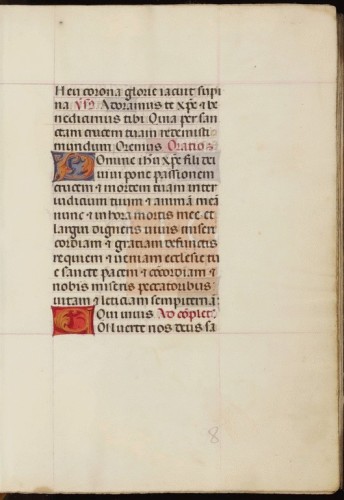 Heu corona glorie iacuit supi
na v̄s Adoramus te xp̄e ⁊ be
nedicimus tibi Quia per san
ctam crucem tuam redemisti
mundum Oremus Oratio
Domine ihū xp̄e fili dei
uiui pone passionem
crucem ⁊ mortem tuam inter
iudicium tuum ⁊ animā meā
nunc ⁊ in hora mortis mee et
largiri digneris uiuis miseri
cordiam ⁊ gratiam defunctis
requiem ⁊ ueniam ecclesie tu
e sancte pacem ⁊ cōcordiam ⁊
nobis miseris peccatoribus
uitam ⁊ leticiam sempiternā
Qui uiuis Ad cōplet
Conuerte nos deus sa
8